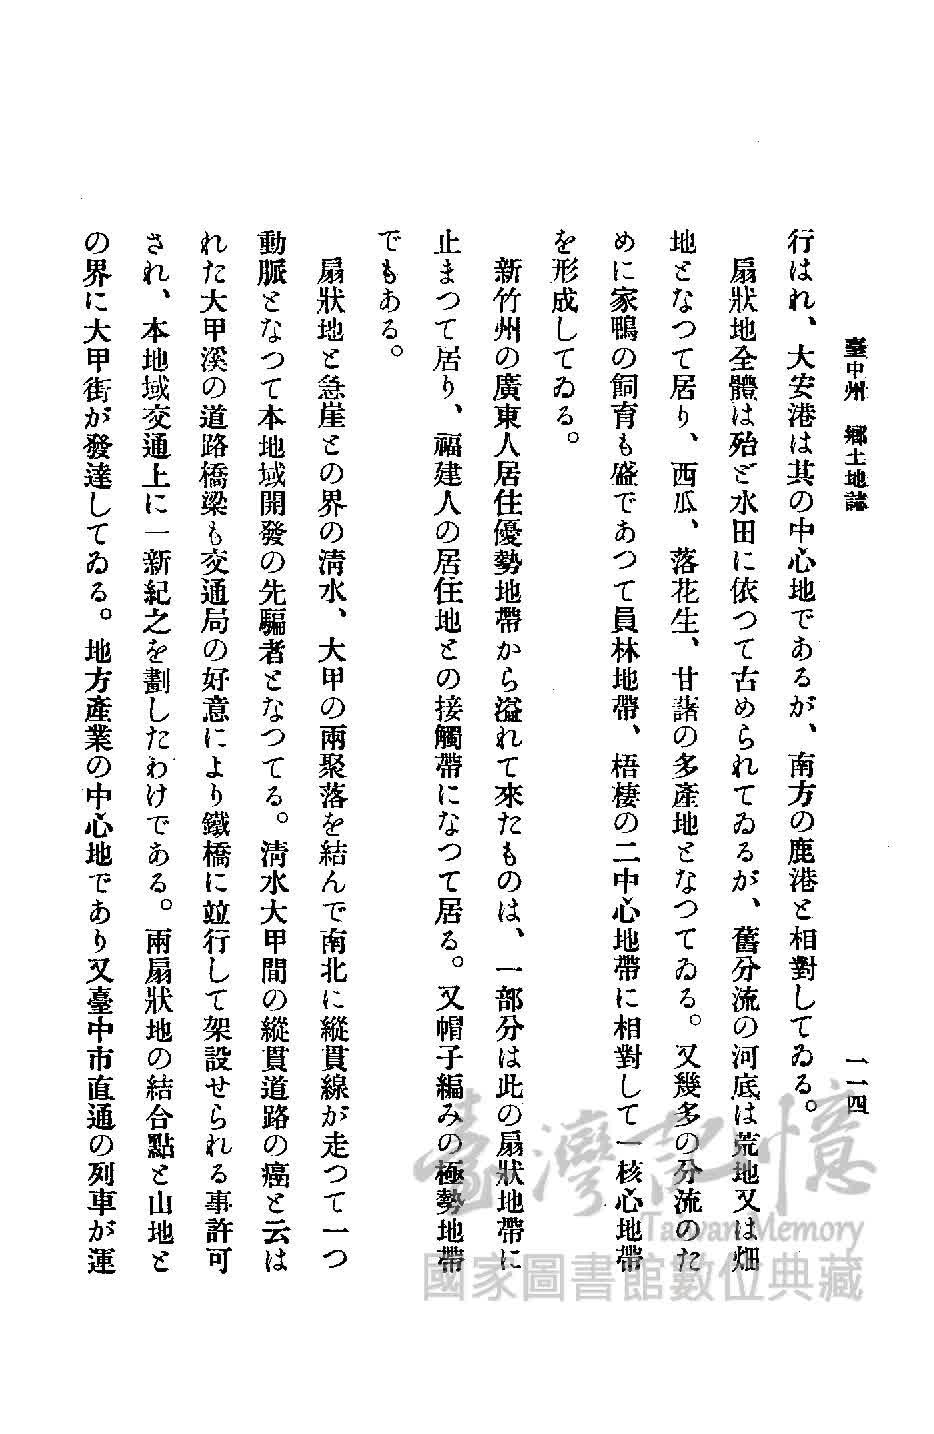 臺中州 鄕土地誌
一一四
行はれ、大安港は其の中心地であるが、南方の鹿港と相對してゐる。
扇狀地全體は殆ど水田に依つて古められてゐるが、舊分流の河底は荒地又は畑
地となつて居り、西瓜、落花生、甘藷の多產地となつてゐる。又幾多の分流のた
めに家鴨の飼育も盛であつて員林地帶、梧棲の二中心地帶に相對して一核心地帶
を形成してゐる。
新竹州の廣東人居住優勢地帶から溢れて來たものは、一部分は此の扇狀地帶に
止まつて居り、福建人の居住地との接觸帶になつて居る。又帽子編みの極勢地帶
でもある。
扇狀地と急崖との界の淸水、大甲の兩聚落を結んで南北に縱貫線が走つて一つ
動脈となつて本地域開發の先驅者となつてる。淸水大甲間の縱貫道路の癌と云は
れた大甲溪の道路橋梁も交通局の好意により鐵橋に竝行して架設せられる事許可
され、本地域交通上に一新紀之を劃したわけである。兩扇狀地の結合點と山地と
の界に大甲街が發達してゐる。地方產業の中心地であり又臺中市直通の列車が運
臺灣記憶
Taiwan Memory
國家圖書館數位典藏